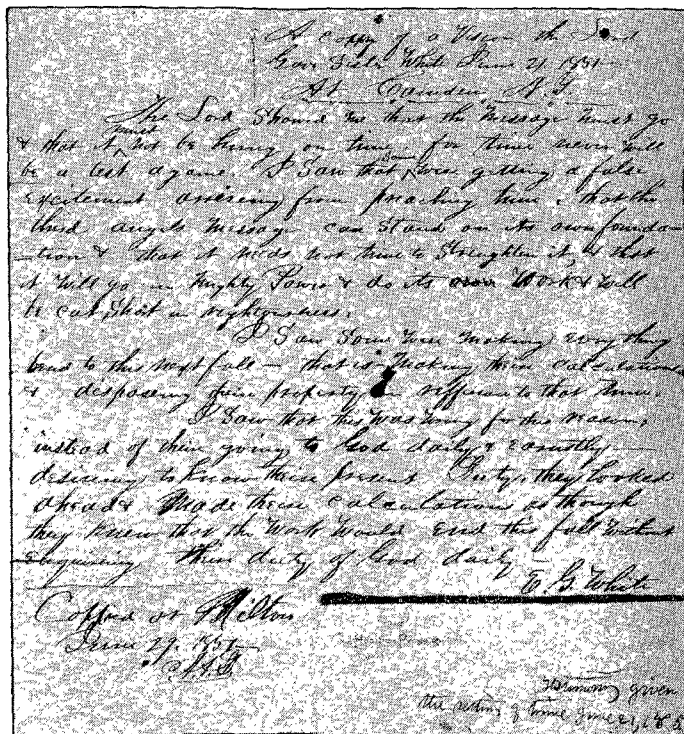 A coppy of a Vision the Lord
Gave Sister White June 21 1851
At Camden N.Y.
The Lord Showed me that the Message must go
& that it must not be hung on time for time never will
be a test againe. I Saw that some were getting a false
excitement arriseing from preaching time, that the
third angels Message can Stand on its own founda-
-tion & that it needs not time to Strengthen it, & that
it Will go in Mighty Power & do its Work & Will
be cut Short in righteousness.
I Saw Some Were Making every thing
bend to this next fall — that is Making their calculations
& desposeing their property in refference to that time.
I Saw that this Was Wrong for this reason,
instead of them going to God daily & earnestly
desireing to know their present Duty, they looked
ahead & Made their calculations as though
they knew that the Work Would End this fall Without
enquireing their duty of God daily —
E G White
Coppied at Milton
June 29. 1851
Testimony given
the setting of time June 21, 185